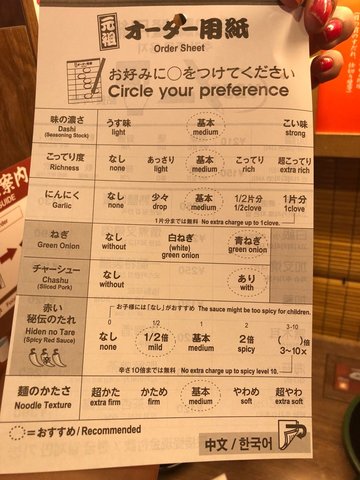 元祖 オーダー用紙
Order Sheet
お好みに○をつけてください
Circle your preference
味の濃さ うす味 基本 こい味
Dashi light medium strong
(Seasoning Stock)
こってり度 なし あっさり 基本 こってり 超こってり
Richness none light medium rich extra rich
にんにく なし 少々 基本 1/2片分 1片分
Garlic none drop medium 1/2clove 1clove
1片分までは無料 No extra charge up to 1clove.
ねぎ なし 白ねぎ 青ねぎ
Green Onion without (white) green onion
green onion
チャーシュー なし あり
Chashu without with
(Sliced Pork)
お子様には「なし」がおすすめ The sauce might be too spicy for children.
赤い 0 1/2 1 2 3-10
秘伝のたれ なし 1/2倍 基本 2倍 ( )倍
Hiden no Tare none mild medium spicy 3~10×
(Spicy Red Sauce)
辛さ10倍まで無料 No extra charge up to spicy level 10.
麺のかたさ 超かた かため 基本 やわめ 超やわ
Noodle Texture extra firm firm medium soft extra soft
=おすすめ/Recommended
中文 / 한국어
案内
GUIDE